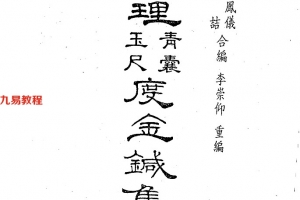 鳳儀 合編 李崇仰 重編
詰
理
青囊
玉尺
度金鍼
九易教程